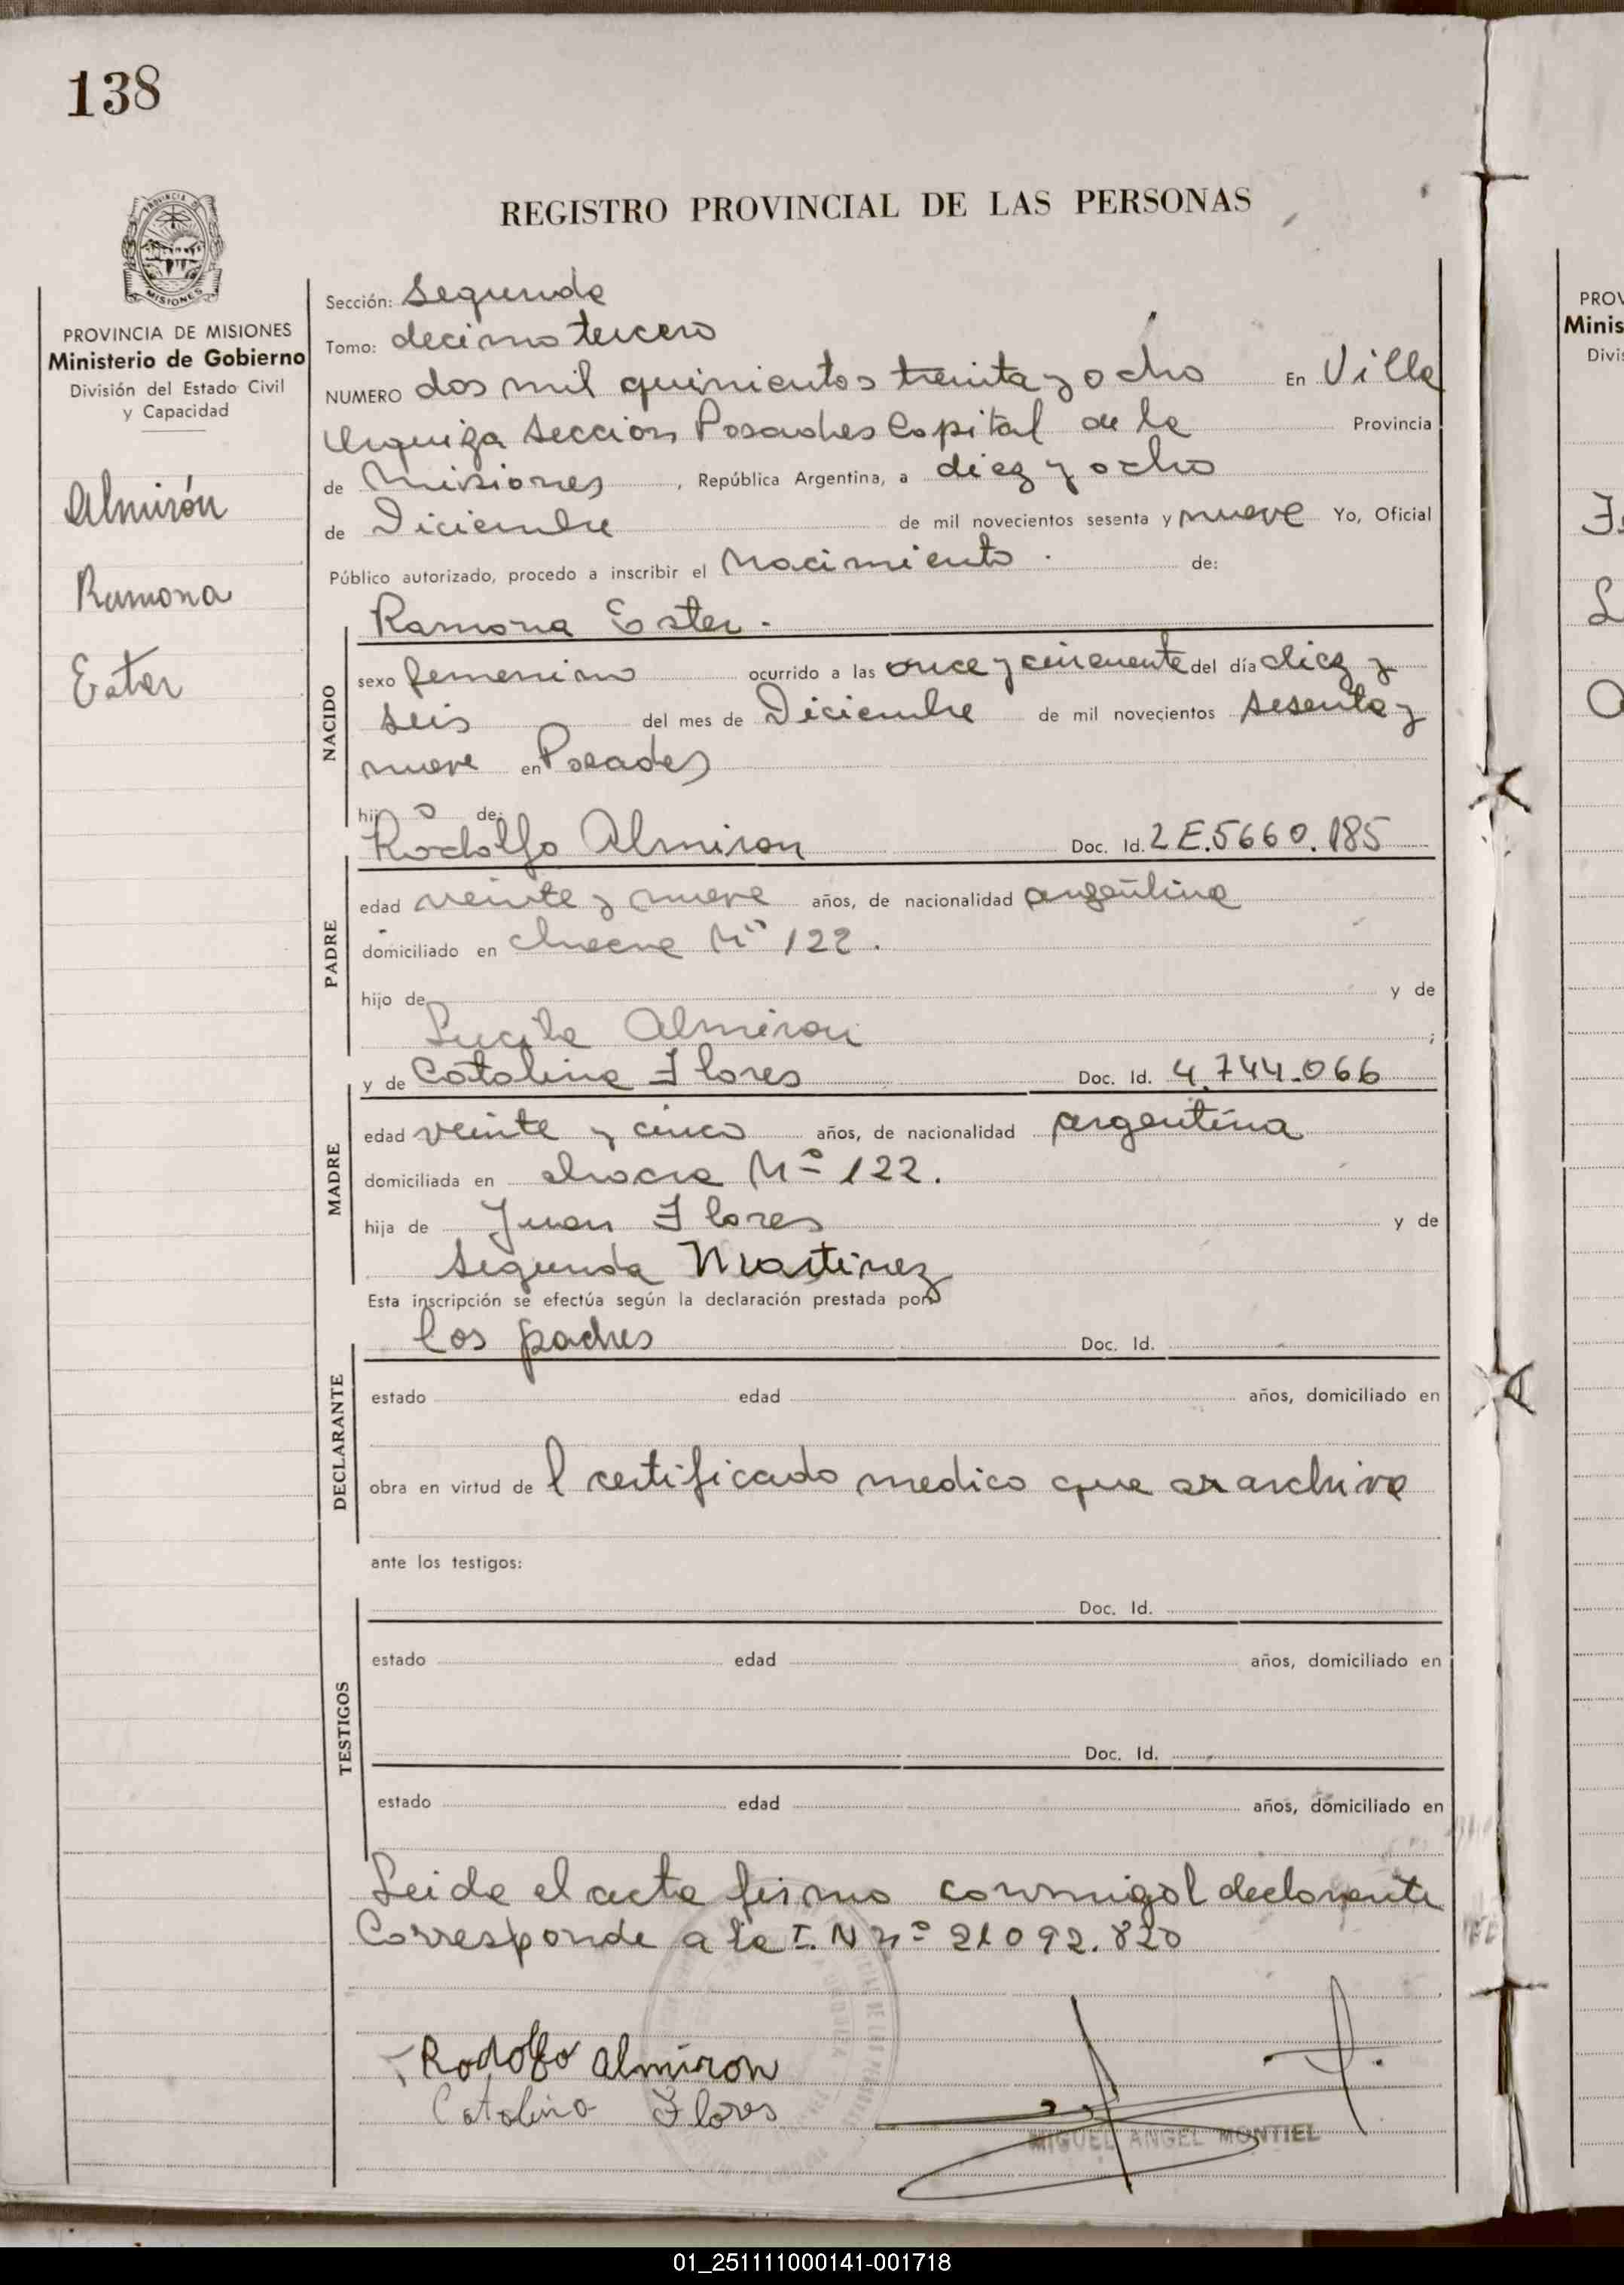 138
REGISTRO PROVINCIAL DE LAS PERSONAS
PROVINCIA DE MISIONES
Ministerio de Gobierno
División del Estado Civil
y Capacidad
Almirón
Ramona
Ester
Sección: Segunda
Tomo: decimo tercero
NUMERO dos mil quinientos treinta y ocho En Villa
Urquiza Seccion Posadas Capital de la Provincia
de Misiones, República Argentina, a diez y ocho
de Diciembre de mil novecientos sesenta y nueve Yo, Oficial
Público autorizado, procedo a inscribir el Nacimiento. de:
Ramona Ester.
NACIDO
sexo femenino ocurrido a las once y cincuenta del día diez y
seis del mes de Diciembre de mil novecientos sesenta y
nueve en Posadas
hij o de:
Rodolfo Almiron Doc. Id. 2E.5660.185
PADRE
edad veinte y nueve años, de nacionalidad argentina
domiciliado en chacra Nº 122.
hijo de y de
Lucila Almiron ;
y de Catalina Flores Doc. Id. 4.744.066
MADRE
edad veinte y cinco años, de nacionalidad argentina
domiciliada en chacra Nº 122.
hija de Juan Flores y de
Segunda Martinez
Esta inscripción se efectúa según la declaración prestada por
los padres Doc. Id.
DECLARANTE
estado edad años, domiciliado en
obra en virtud de l certificado medico que archivo
ante los testigos:
Doc. Id.
TESTIGOS
estado edad años, domiciliado en
Doc. Id.
estado edad años, domiciliado en
Leida el acta firmo conmigo l declarante
Corresponde a la I. N nº 21092.820
Rodolfo Almiron
Catalina Flores
MIGUEL ANGEL MONTIEL
PROV
Minis
Divi
01_251111000141-001718